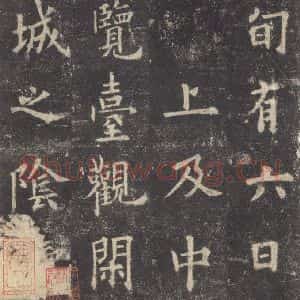 旬有六日
上及中
覽臺觀閑
城之陰
shufawang.cn